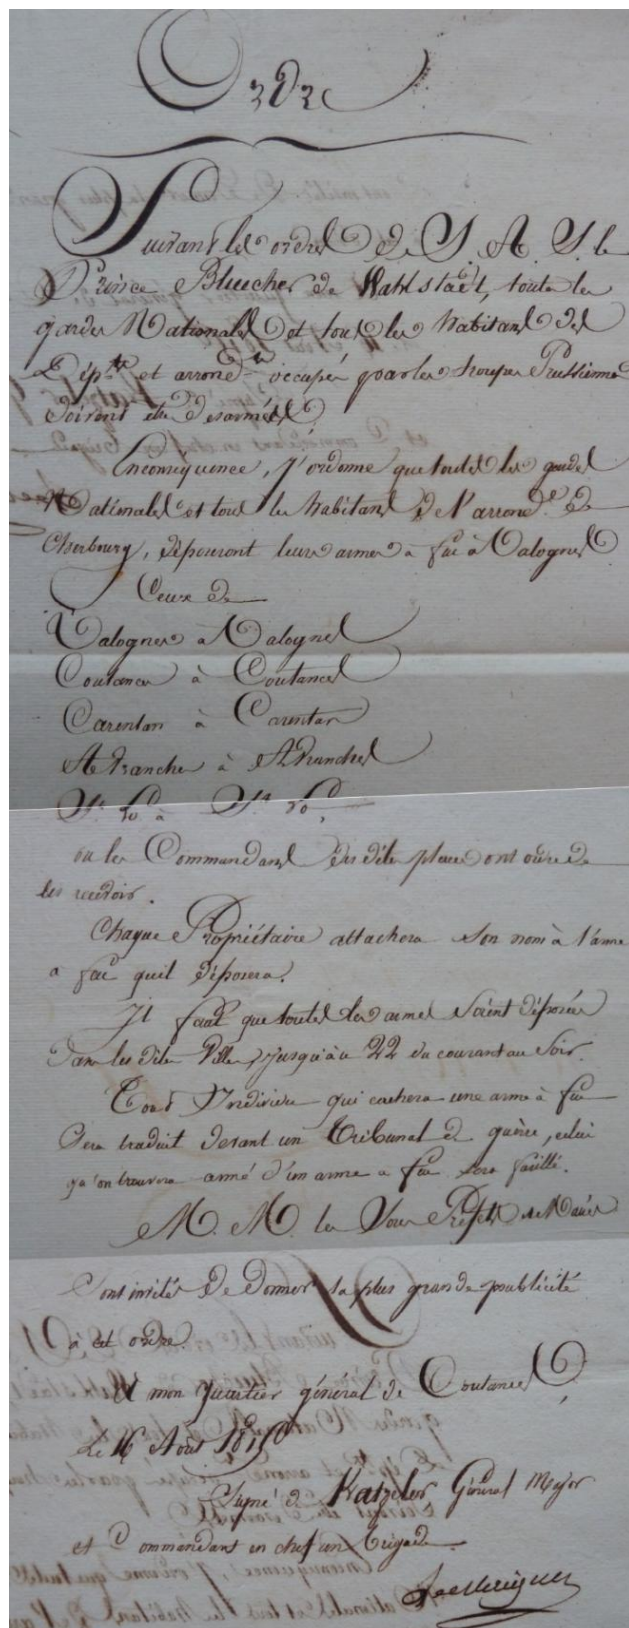 Ordre
Suivant les ordres de S. A. S. le
Prince Bluecher de Wahlstaët, toute les
gardes Nationales et tous les habitans des
Dép.ts et arrond.ts occupés par les troupes Prussiennes
doivent être desarmés
En consequence, j'ordonne que toutes les gardes
Nationales et tous les habitans de l'arrond.t de
Cherbourg, déposeront leurs armes à feu à Valognes
Ceux de
Valognes à Valognes
Coutances à Coutances
Carentan à Carentan
Avranches à Avranches
St Lo à St Lo,
ou les Commandans des dites places ont ordre de
les recevoir.
Chaque Propriétaire attachera son nom à l'arme
a feu quil déposera.
Il faut que toutes les armes soient déposées
dans les dites Villes jusqu'au 22 du courant au Soir.
Tout Individu qui cachera une arme à feu
Sera traduit devant un Tribunal de guère, celui
qu'on trouvera armé d'un arme a feu sera fusillé.
M. M. les Sous Préfets et Maires
sont invités de donner la plus grande publicité
à cet ordre.
A mon quartier général de Coutances,
Le 16 Août 1815
Signé de Katzeler Général Major
et Commandant en chef une brigade